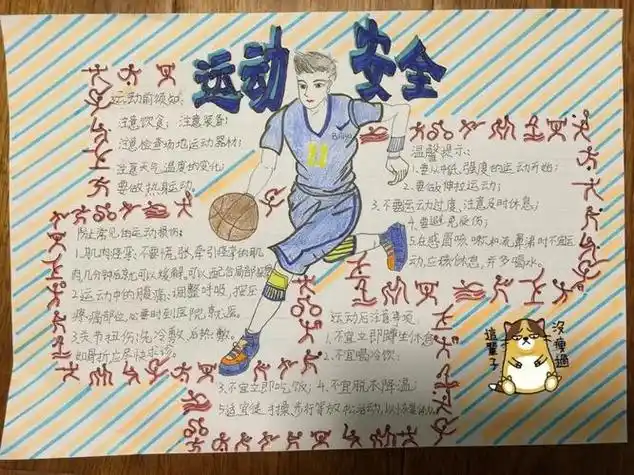 运动安全
运动前须知:
注意饮食; 注意装备;
注意检查场地运动器材;
注意天气、温度的变化;
要做热身运动。
防止常见的运动损伤:
1.肌肉痉挛:不要慌张,牵引痉挛的肌
肉几分钟后就可以缓解,可以配合局部按摩
2.运动中的腹痛:调整呼吸,按压
疼痛部位,必要时到医院就医。
3.关节扭伤:先冷敷,后热敷。
如骨折应尽快求诊。
11
温馨提示:
1.要从中低强度的运动开始;
2.要做伸拉运动;
3.不要运动过度,注意及时休息;
4.要避免受伤;
5.在感冒咳嗽和流鼻涕时不宜运
动,应该休息,并多喝水。
运动后注意事项
1.不宜立即蹲坐休息
2.不宜喝冷饮;
3.不宜立即吃饭; 4.不宜脱衣降温;
5.适宜徒手操、步行等放松活动,
沒瘦過
這輩子